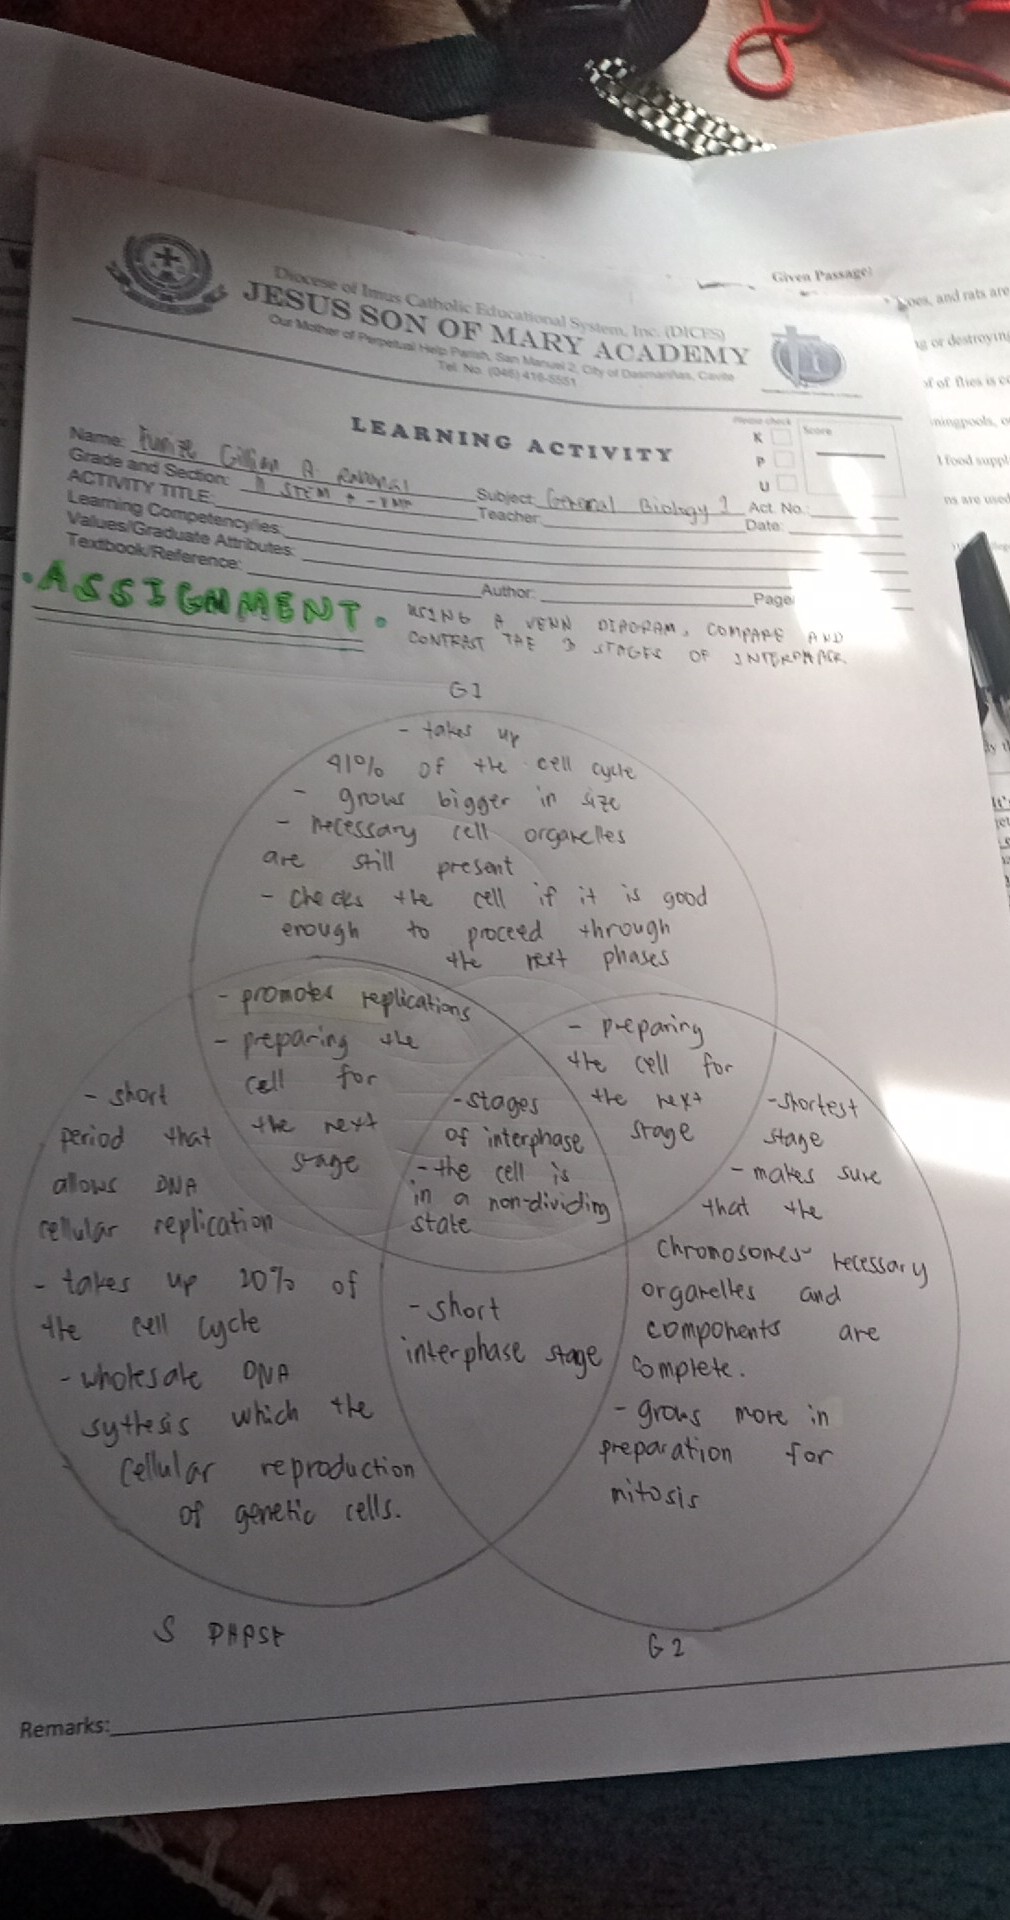 Given Passage:
Diocese of Imus Catholic Educational System, Inc. (DICES)
JESUS SON OF MARY ACADEMY
Our Mother of Perpetual Help Parish, San Manuel 2, City of Dasmariñas, Cavite
Tel. No. (046) 416-5551
and rats are
or destroying
of flies is
food suppl
ns are used
LEARNING ACTIVITY
Please check
K
P
U
Score
Name: Gillian A.
Grade and Section: 11 STEM
Subject: General Biology 1
Act. No.
ACTIVITY TITLE:
Teacher:
Date:
Learning Competency/ies:
Values/Graduate Attributes:
Textbook/Reference:
Author:
Page
• ASSIGNMENT •
USING A VENN DIAGRAM, COMPARE AND
CONTRAST THE 3 STAGES OF INTERPHASE.
G1
- takes up
41% of the cell cycle
- grows bigger in size
- necessary cell organelles
are still present
- checks the cell if it is good
enough to proceed through
the next phases
- promotes replications
- preparing the
cell for
the next
stage
- preparing
the cell for
the next
stage
- stages
of interphase
- the cell is
in a non-dividing
state
- short
period that
allows DNA
cellular replication
- takes up 20% of
the cell cycle
- wholesale DNA
sythesis which the
cellular reproduction
of genetic cells.
- short
interphase stage
- shortest
stage
- makes sure
that the
chromosomes necessary
organelles and
components are
complete.
- grows more in
preparation for
mitosis
S PHASE
G2
Remarks: